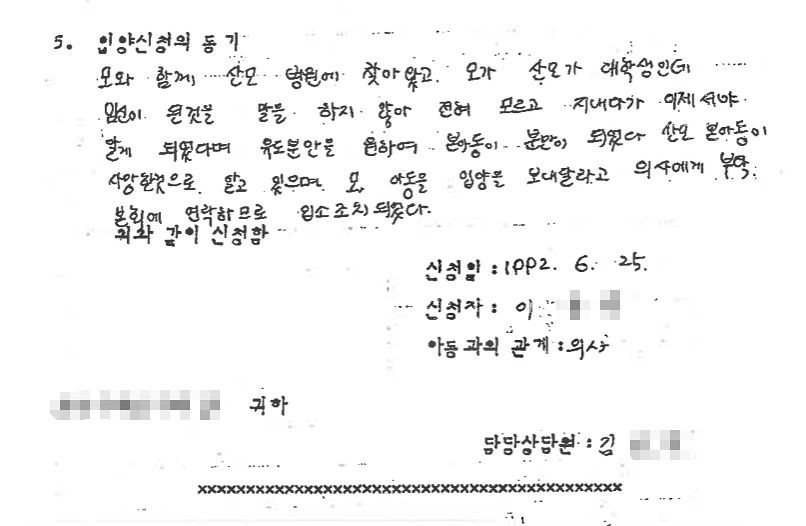 5. 입양신청의 동기
모와 함께 산모 병원에 찾아 왔고. 모가 산모가 대학생인데
임신이 된것을 말을 하지 않아 전혀 모르고 지내다가 이제서야
알게 되었다며 유도분만을 원하여 본아동이 분만이 되었다 산모 본아동이
사망한것으로 알고 있으며, 모, 아동을 입양을 보내달라고 의사에게 부탁.
본회에 연락하므로 입소조치되었다.
위와 같이 신청함
신청일 : 1992. 6. 25.
신청자 : 이
아동과의 관계 : 의사
귀하
담당상담원 : 김
xxxxxxxxxxxxxxxxxxxxxxxxxxxxxxxxxxxxxxxxxxxx